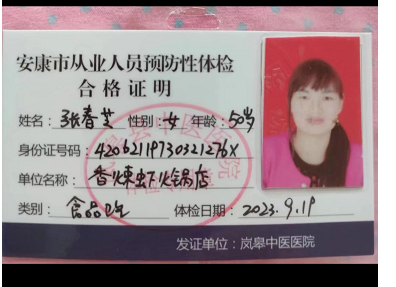 安康市从业人员预防性体检
合格证明
姓名：张春芝 性别：女 年龄：50岁
身份证号码：42062119730321276X
单位名称：香辣虾火锅店
类别：食品 体检日期：2023.9.19
发证单位：岚皋中医医院